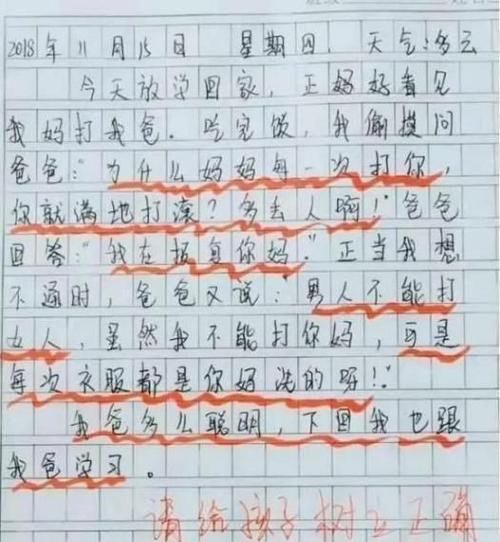 2018年11月15日 星期四. 天气:多云
今天放学回家,正妈好看见
我妈打我爸。吃完饭,我偷摸问
爸爸:"为什么妈妈每一次打你,
你就满地打滚?多丢人啊!"爸爸
回答:"我在报复你妈."正当我想
不通时,爸爸又说:"男人不能打
女人,虽然我不能打你妈,可是
每次衣服都是你妈洗的呀!"
我爸多么聪明,下回我也跟
我爸学习。
请给孩子树立正确